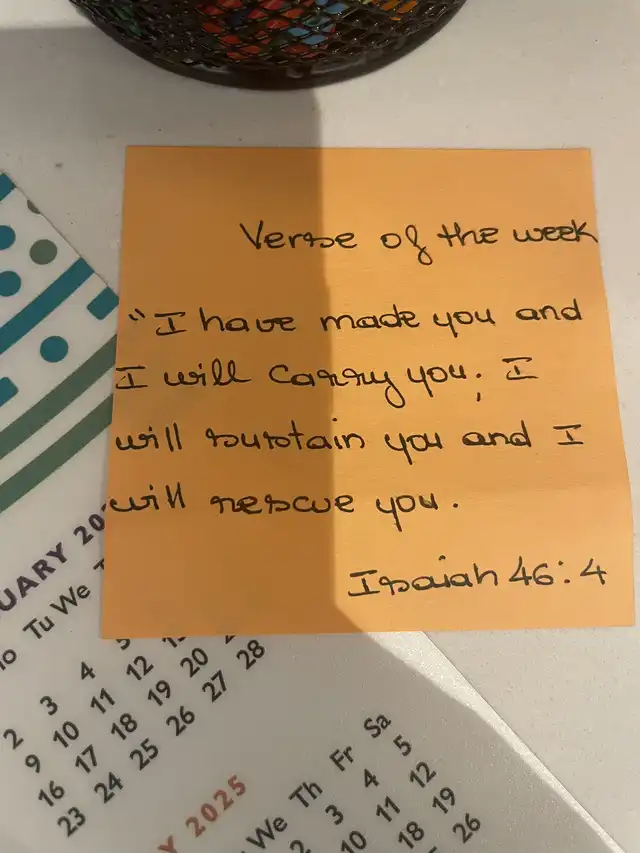 Verse of the week
"I have made you and
I will carry you; I
will sustain you and I
will rescue you.
Isaiah 46:4
UARY 20
Tu We
2 3 4 5
9 10 11 12
16 17 18 19 20
23 24 25 26 27 28
Y 2025
We Th Fr Sa
2 3 4 5
10 11 12
18 19
26